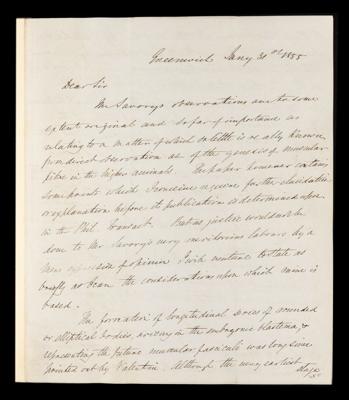 Greenwich Jany 31st 1855
Dear Sir
Mr Savory's observations are to some
extent original and so far of importance as
relating to a matter of which so little is really known
from direct observation as of the genesis of muscular
fibre in the higher animals. His paper however contains
some points which I conceive require further elucidation
or explanation before its publication is determined upon
in the Phil. Transact. But as justice would not be
done to Mr Savory's very meritorious labours by a
mere expression of opinion I will venture to state as
briefly as I can the considerations upon which mine is
based.
The formation of longitudinal series of rounded
or elliptical bodies, arising in the embryonic blastema, &
representing the future muscular fasciculi was long since
pointed out by Valentin. Although the very earliest